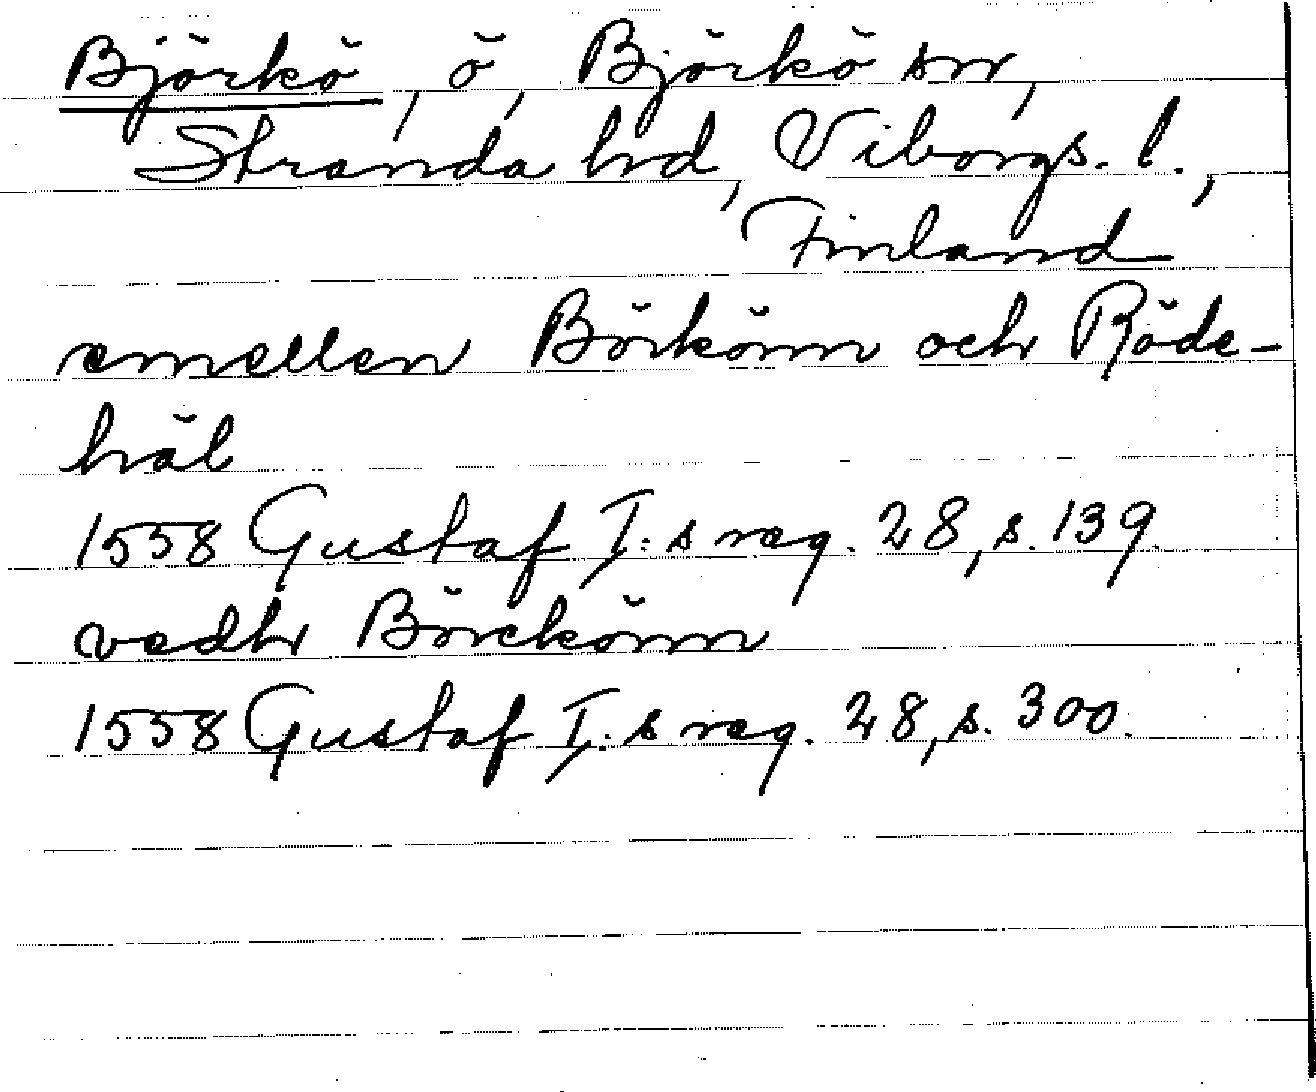 Björkö, ö, Björkö sn,
Stranda hd, Viborgs. l.,
Finland
emellen Börkönn och Röde-
häl
1558 Gustaf I:s reg. 28, s. 139.
vedh Börckönn
1558 Gustaf I:s reg. 28, s. 300.